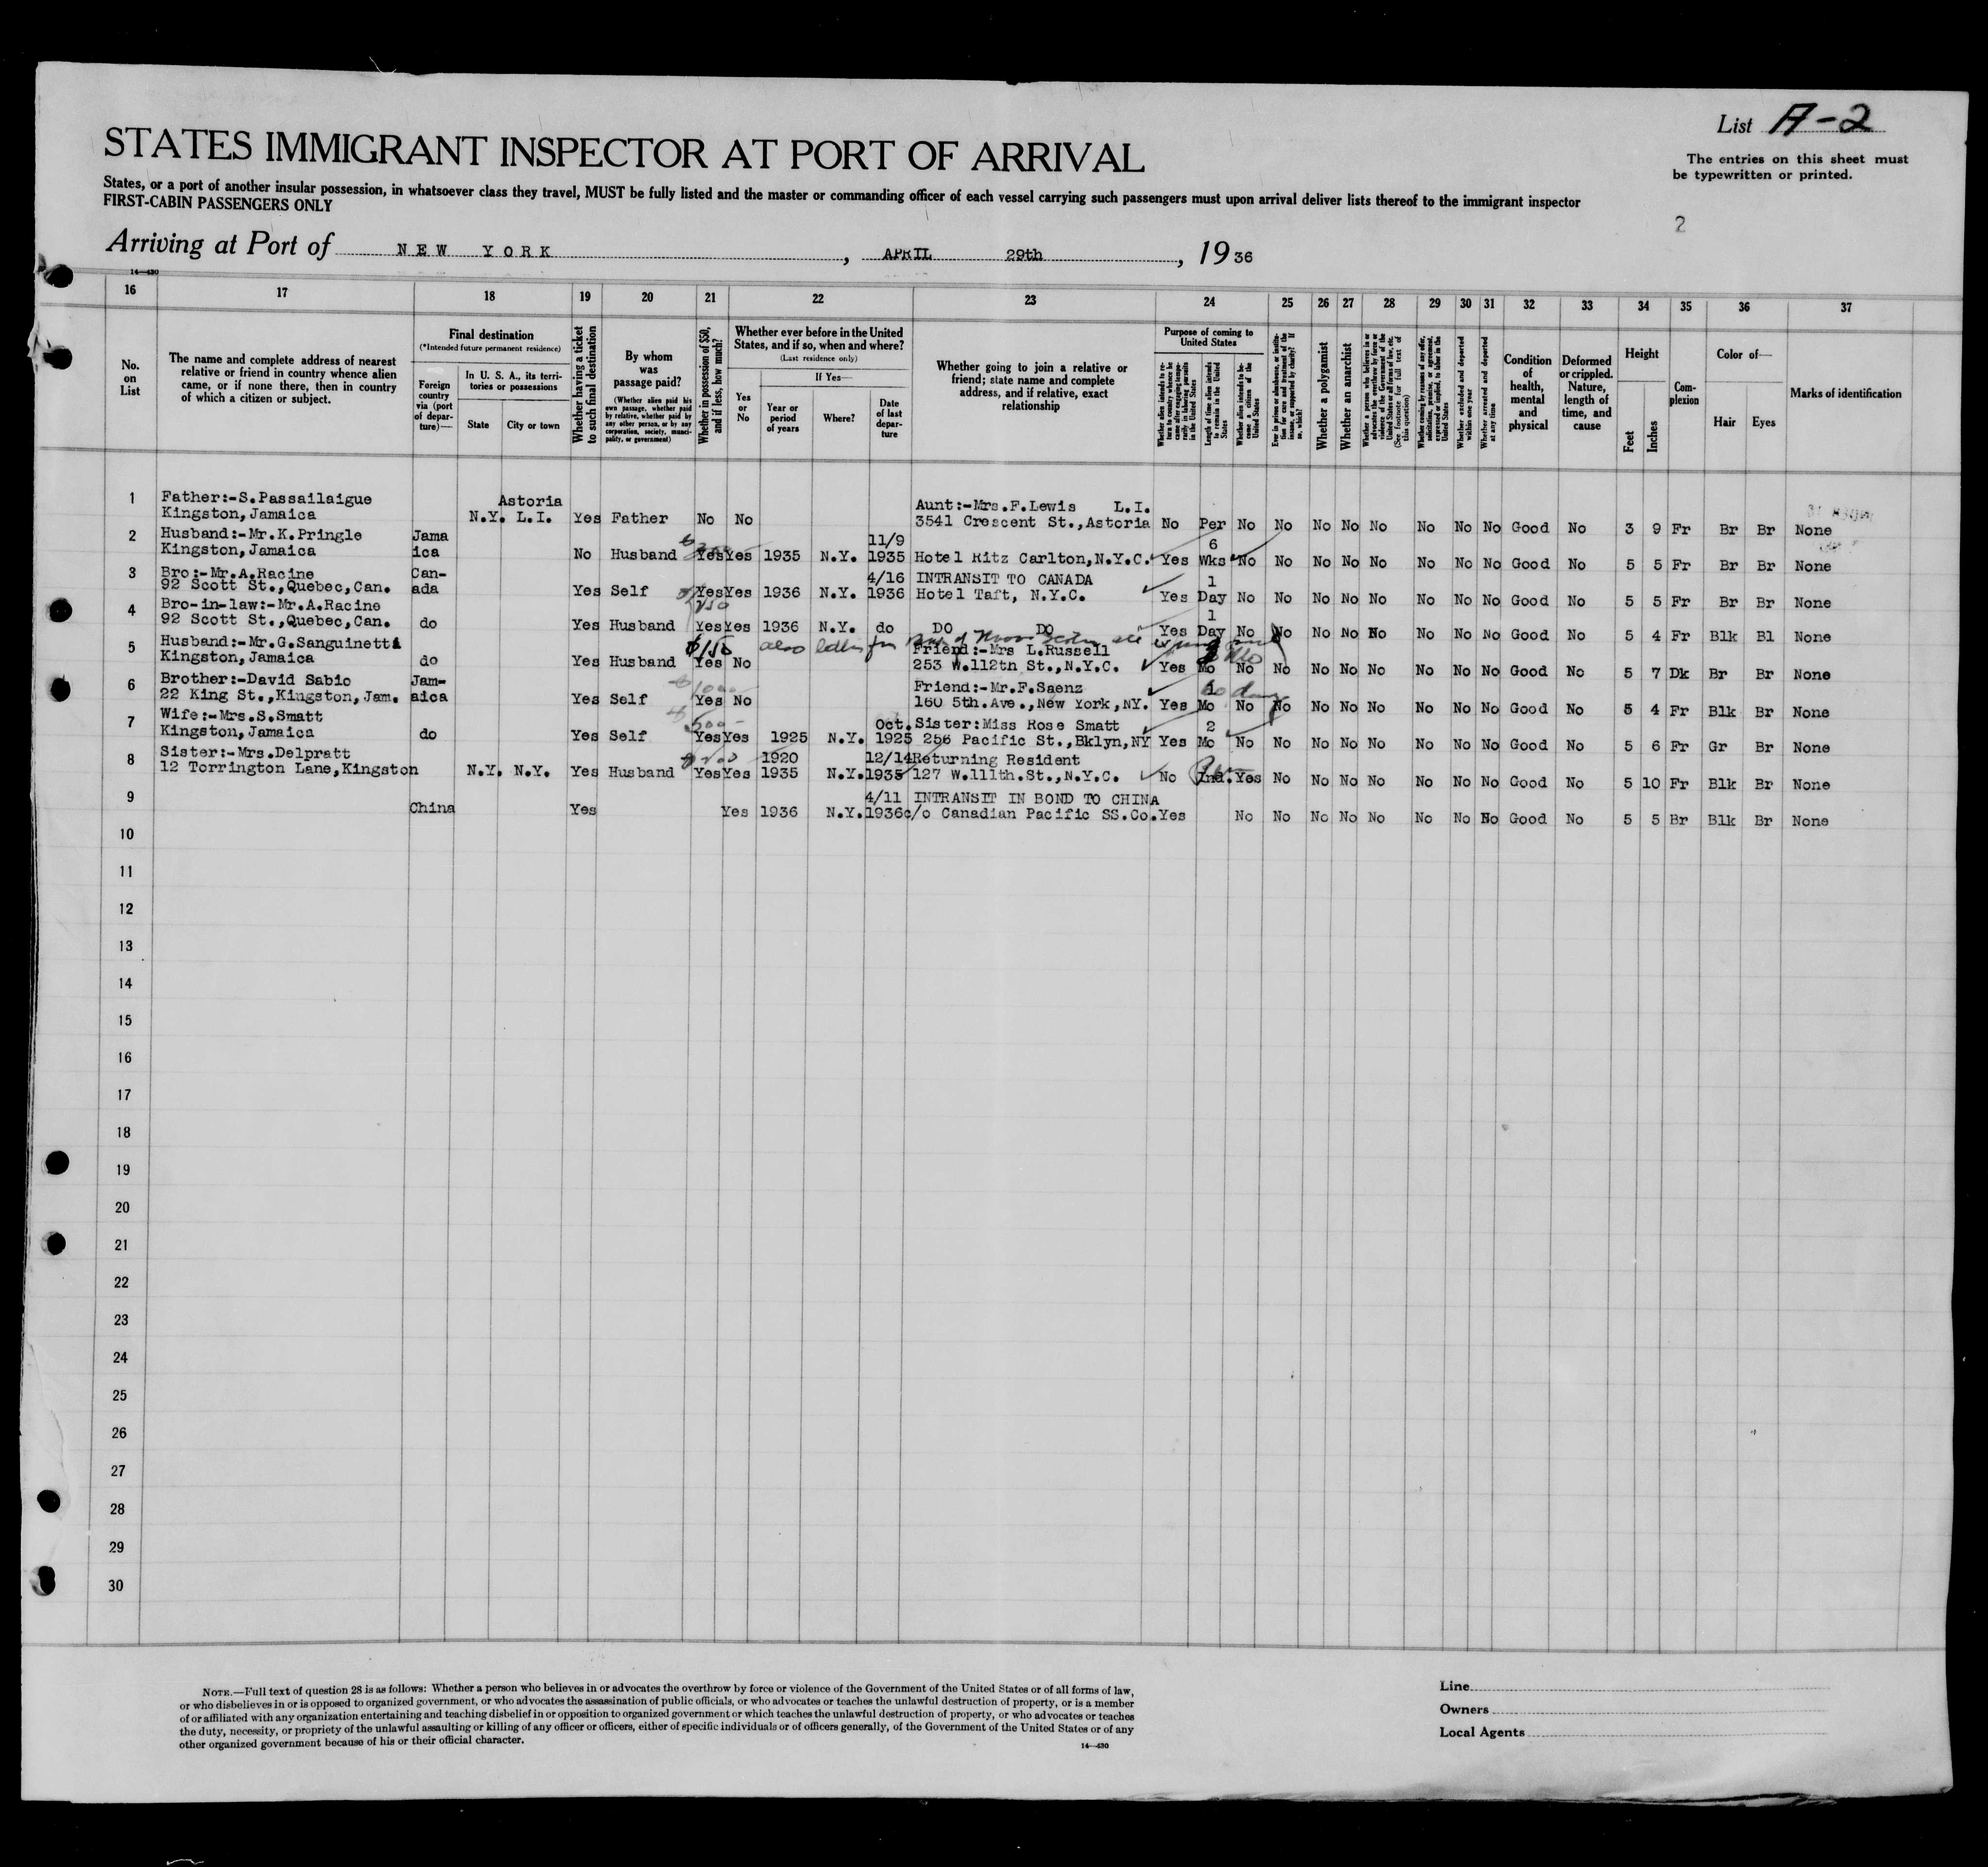 List A-2
STATES IMMIGRANT INSPECTOR AT PORT OF ARRIVAL
The entries on this sheet must
be typewritten or printed.
States, or a port of another insular possession, in whatsoever class they travel, MUST be fully listed and the master or commanding officer of each vessel carrying such passengers must upon arrival deliver lists thereof to the immigrant inspector
FIRST-CABIN PASSENGERS ONLY
2
Arriving at Port of NEW YORK, APRIL 29th, 1936
14-430
16 17 18 19 20 21 22 23 24 25 26 27 28 29 30 31 32 33 34 35 36 37
No. on List
The name and complete address of nearest relative or friend in country whence alien came, or if none there, then in country of which a citizen or subject.
Final destination
(*Intended future permanent residence)
Foreign country via (port of departure)—
In U. S. A., its territories or possessions
State
City or town
Whether having a ticket to such final destination
By whom was passage paid?
(Whether alien paid his own passage, whether paid by relative, whether paid by any other person, or by any corporation, society, municipality, or government)
Whether in possession of $50, and if less, how much?
Whether ever before in the United States, and if so, when and where?
(Last residence only)
Yes or No
If Yes—
Year or period of years
Where?
Date of last departure
Whether going to join a relative or friend; state name and complete address, and if relative, exact relationship
Purpose of coming to United States
Length of time alien intends to remain in the United States
Whether alien intends to become a citizen of the United States
Whether a polygamist
Whether an anarchist
(See footnote for full text of this question)
Whether excluded and deported within one year
Whether arrested and deported at any time
Condition of health, mental and physical
Deformed or crippled. Nature, length of time, and cause
Height
Feet
Inches
Complexion
Color of—
Hair
Eyes
Marks of identification
1 Father:-S.Passailaigue Astoria Aunt:-Mrs.F.Lewis L.I.
Kingston,Jamaica N.Y. L.I. Yes Father No No 3541 Crescent St.,Astoria No Per No No No No No No No No Good No 3 9 Fr Br Br None
2 Husband:-Mr.K.Pringle Jama 11/9 6
Kingston,Jamaica ica No Husband Yes Yes 1935 N.Y. 1935 Hotel Ritz Carlton,N.Y.C. Yes Wks No No No No No No No No Good No 5 5 Fr Br Br None
3 Bro:-Mr.A.Racine Can- 4/16 INTRANSIT TO CANADA 1
92 Scott St.,Quebec,Can. ada Yes Self Yes Yes 1936 N.Y. 1936 Hotel Taft, N.Y.C. Yes Day No No No No No No No No Good No 5 5 Fr Br Br None
4 Bro-in-law:-Mr.A.Racine 1
92 Scott St.,Quebec,Can. do Yes Husband Yes Yes 1936 N.Y. do DO DO Yes Day No No No No No No No No Good No 5 4 Fr Blk Bl None
5 Husband:-Mr.G.Sanguinetti $150 also Friend:-Mrs L.Russell
Kingston,Jamaica do Yes Husband Yes No 253 W.112th St.,N.Y.C. Yes Mo No No No No No No No No Good No 5 7 Dk Br Br None
6 Brother:-David Sabio Jam- Friend:-Mr.F.Saenz
22 King St.,Kingston,Jam. aica Yes Self Yes No 160 5th.Ave.,New York,NY. Yes Mo No No No No No No No No Good No 5 4 Fr Blk Br None
7 Wife:-Mrs.S.Smatt 500- Oct. Sister:Miss Rose Smatt 2
Kingston,Jamaica do Yes Self Yes Yes 1925 N.Y. 1925 256 Pacific St.,Bklyn,NY Yes Mo No No No No No No No No Good No 5 6 Fr Gr Br None
8 Sister:-Mrs.Delpratt 1920 12/14 Returning Resident
12 Torrington Lane,Kingston N.Y. N.Y. Yes Husband Yes Yes 1935 N.Y. 1935 127 W.111th.St.,N.Y.C. No Ind. Yes No No No No No No No Good No 5 10 Fr Blk Br None
9 4/11 INTRANSIT IN BOND TO CHINA
China Yes Yes 1936 N.Y. 1936 c/o Canadian Pacific SS.Co. Yes No No No No No No No No Good No 5 5 Br Blk Br None
10
11
12
13
14
15
16
17
18
19
20
21
22
23
24
25
26
27
28
29
30
NOTE.—Full text of question 28 is as follows: Whether a person who believes in or advocates the overthrow by force or violence of the Government of the United States or of all forms of law,
or who disbelieves in or is opposed to organized government, or who advocates the assassination of public officials, or who advocates or teaches the unlawful destruction of property, or is a member
of or affiliated with any organization entertaining and teaching disbelief in or opposition to organized government or which teaches the unlawful destruction of property, or who advocates or teaches
the duty, necessity, or propriety of the unlawful assaulting or killing of any officer or officers, either of specific individuals or of officers generally, of the Government of the United States or of any
other organized government because of his or their official character.
14-430
Line
Owners
Local Agents